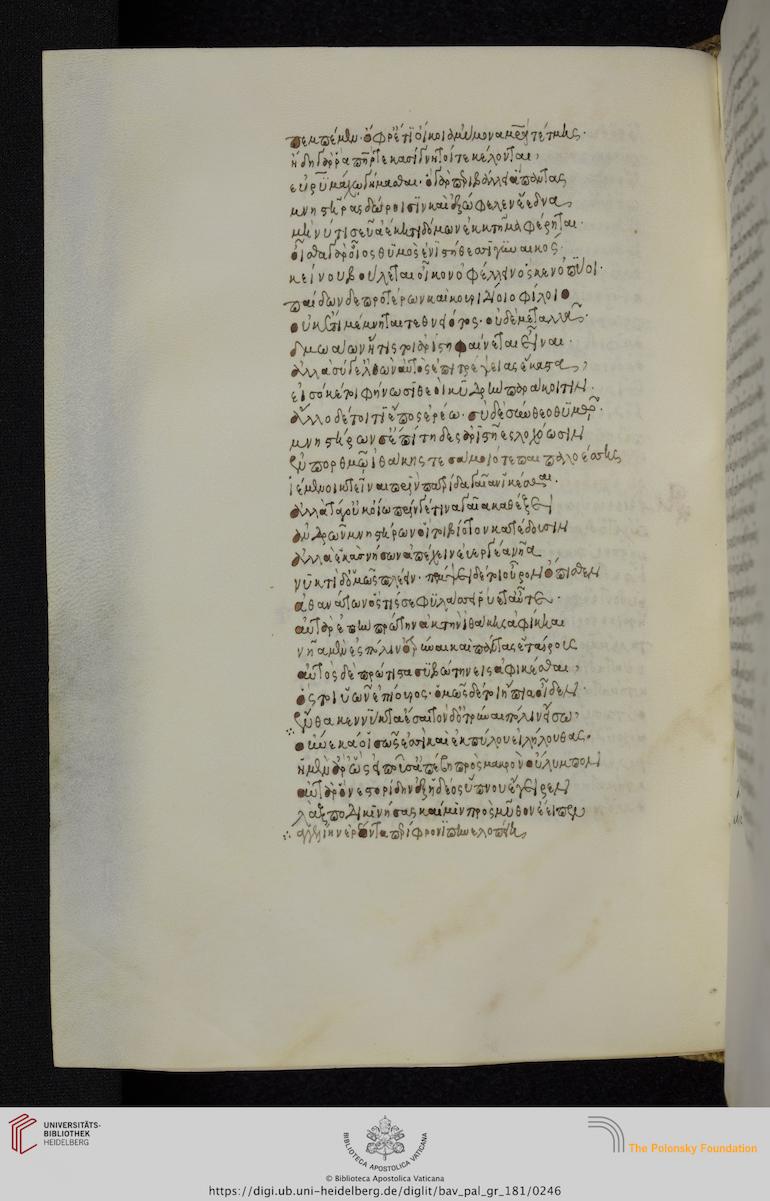 πεμπέμεν· ὄφρ' ἔτι οἴκοι ἀμύμονα μητέρα τέτμῃς·
ἤδη γάρ ῥα πατήρ τε κασίγνητοί τε κέλονται,
εὐρυμάχῳ γήμασθαι· ὁ γὰρ περιβάλλει ἅπαντας
μνηστῆρας δώροισιν καὶ ἐξώφελεν ἔεδνα,
μὴ νύ τι σεῦ ἀέκητι δόμων ἐκ κτῆμα φέρηται·
οἶσθα γὰρ οἷος θυμὸς ἐνὶ στήθεσσι γυναικός·
κείνου βούλεται οἶκον ὀφέλλειν ὅς κεν ὀπυίοι·
παίδων δὲ προτέρων καὶ κουριδίοιο φίλοιο
οὐκέτι μέμνηται τεθνηότος· οὐδὲ μεταλλᾷ·
δμωάων ἥτίς τοι ἀρίστη φαίνεται εἶναι·
ἀλλὰ σύ γ' ἐλθὼν αὐτὸς ἐπιτρέψειας ἕκαστα,
εἰσόκέ τοι φήνωσι θεοὶ κυδρὴν παράκοιτιν·
ἄλλο δέ τοί τι ἔπος ἐρέω· σὺ δὲ σύνθεο θυμῷ·
μνηστήρων σ' ἐπίτηδες ἀριστῆες λοχόωσιν
ἐν πορθμῷ ἰθάκης τε σάμοιό τε παιπαλοέσσης
ἱέμενοι κτεῖναι πρὶν πατρίδα γαῖαν ἱκέσθαι·
ἀλλὰ τά γ' οὐκ ὀίω πρίν γέ τινα γαῖα καθέξει
ἀνδρῶν μνηστήρων οἵ τοι βίοτον κατέδουσιν
ἀλλὰ ἑκὰς νήσων ἀπέχειν εὐεργέα νῆα
νυκτὶ δ' ὁμῶς πλείειν· πέμψει δέ τοι οὖρον ὄπισθεν
ἀθανάτων ὅστίς σε φυλάσσει ῥύεταί τε·
αὐτὰρ ἐπὴν πρώτην ἀκτὴν ἰθάκης ἀφίκηαι
νῆα μὲν ἐς πόλιν ὀτρῦναι καὶ πάντας ἑταίρους
αὐτὸς δὲ πρώτιστα συβώτην εἰσαφικέσθαι,
ὅς τοι ὑῶν ἐπίουρος· ὁμῶς δέ τοι ἤπια οἶδεν·
ἔνθα κεν νύκτ' ἀέσαι τὸν δ' ὀτρῦναι πόλιν εἴσω,
οὕνεκά οἱ σῶς ἐσσὶ καὶ ἐκ πύλου εἰλήλουθας·
ἡ μὲν ἄρ' ὣς εἰποῦσ' ἀπέβη πρὸς μακρὸν ὄλυμπον
αὐτὰρ ὃ νεστορίδην ἐξ ἡδέος ὕπνου ἔγειρεν
λὰξ ποδὶ κινήσας καί μιν πρὸς μῦθον ἔειπεν
ἀγγελίην ἐρέοντα περίφρονι πηνελοπείῃ,
UNIVERSITÄTS-
BIBLIOTHEK
HEIDELBERG
BIBLIOTECA APOSTOLICA VATICANA
The Polonsky Foundation
© Biblioteca Apostolica Vaticana
https://digi.ub.uni-heidelberg.de/diglit/bav_pal_gr_181/0246